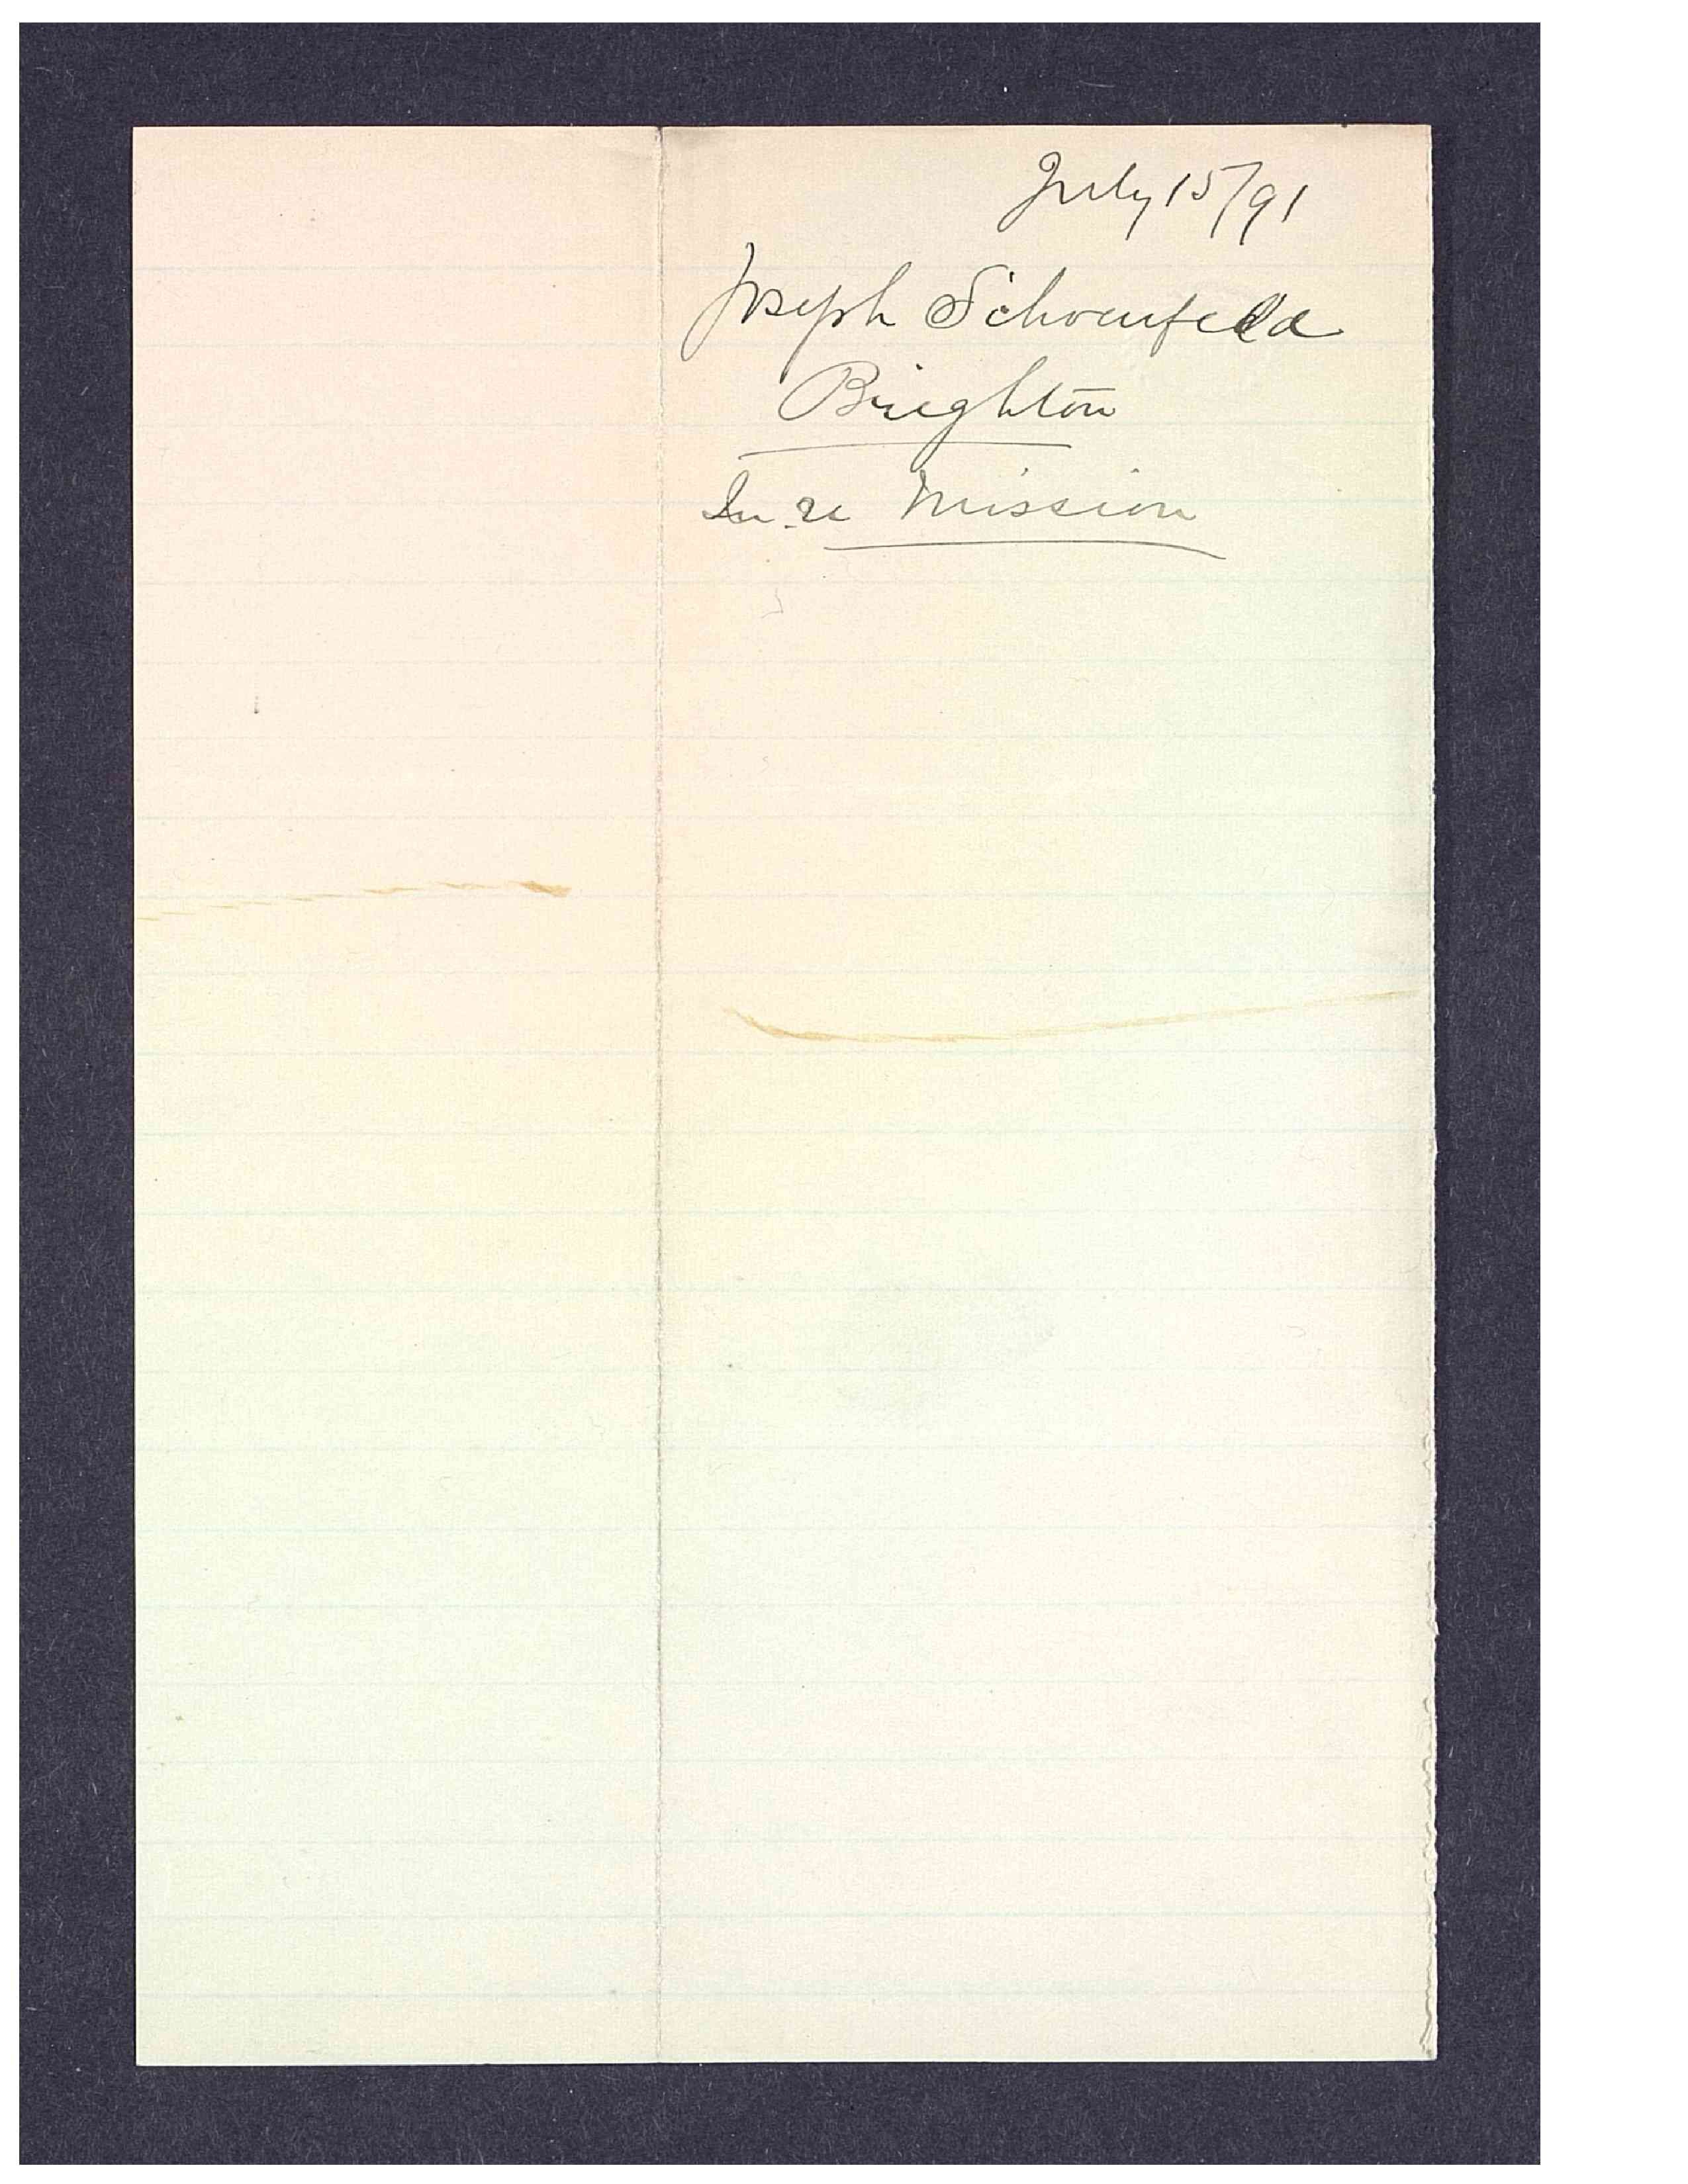 July 15/91
Joseph Schoenfeld
Brighton
In re Mission